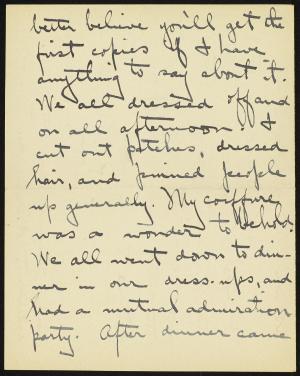 better believe you'll get the
first copies if I have
anything to say about it.
We all dressed off and
on all afternoon. I
cut out patches, dressed
hair, and pinned people
up generally. My coiffure
was a wonder to behold.
We all went down to din-
ner in our dress-ups, and
had a mutual admiration
party. After dinner came